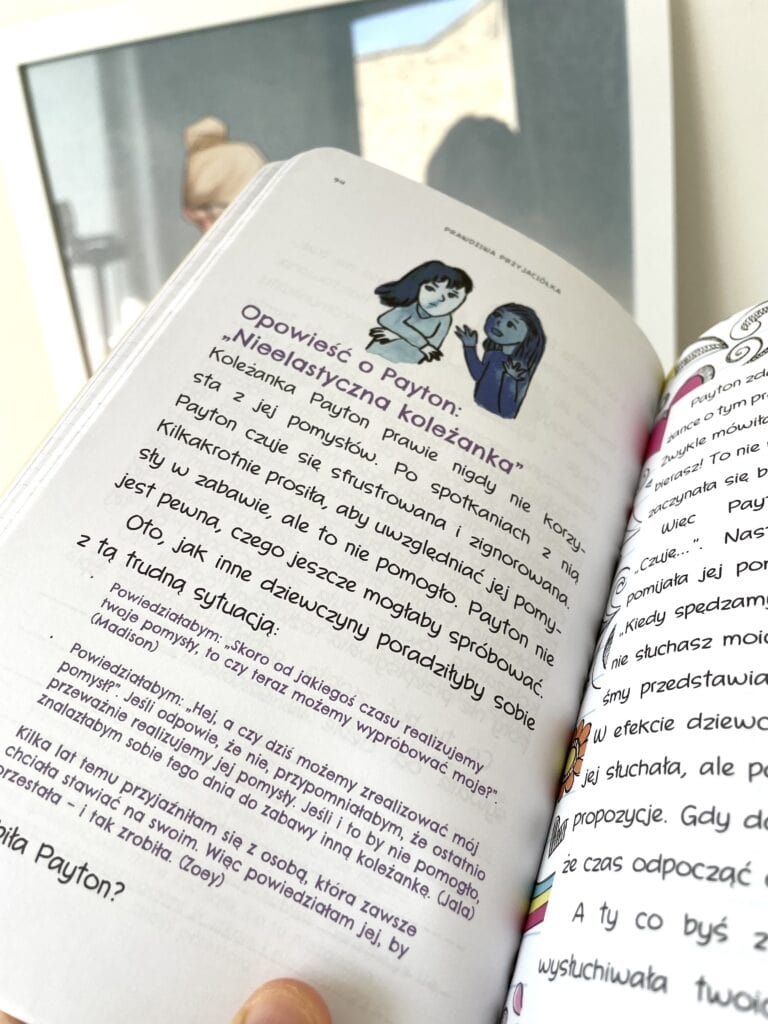 94
PRAWDZIWA PRZYJACIÓŁKA
Opowieść o Payton:
„Nieelastyczna koleżanka”
Koleżanka Payton prawie nigdy nie korzy-
sta z jej pomysłów. Po spotkaniach z nią
Payton czuje się sfrustrowana i zignorowana.
Kilkakrotnie prosiła, aby uwzględniać jej pomy-
sły w zabawie, ale to nie pomogło. Payton nie
jest pewna, czego jeszcze mogłaby spróbować.
Oto, jak inne dziewczyny poradziłyby sobie
z tą trudną sytuacją:
Powiedziałabym: „Skoro od jakiegoś czasu realizujemy
twoje pomysły, to czy teraz możemy wypróbować moje?”
(Madison)
Powiedziałabym: „Hej, a czy dziś możemy zrealizować mój
pomysł?”. Jeśli odpowie, że nie, przypomniałabym, że ostatnio
przeważnie realizujemy jej pomysły. Jeśli i to by nie pomogło,
znalazłabym sobie tego dnia do zabawy inną koleżankę. (Jala)
Kilka lat temu przyjaźniłam się z osobą, która zawsze
chciała stawiać na swoim. Więc powiedziałam jej, by
przestała – i tak zrobiła. (Zoey)
biła Payton?
Payton zde
żance o tym pr
Zwykle mówiła
bierasz! To nie
zaczynała się b
Więc Payt
„Czuję...”. Nast
pomijała jej pom
„Kiedy spędzamy
nie słuchasz moic
śmy przedstawia
W efekcie dziewc
jej słuchała, ale po
propozycje. Gdy do
że czas odpocząć
A ty co byś z
wysłuchiwała twoic